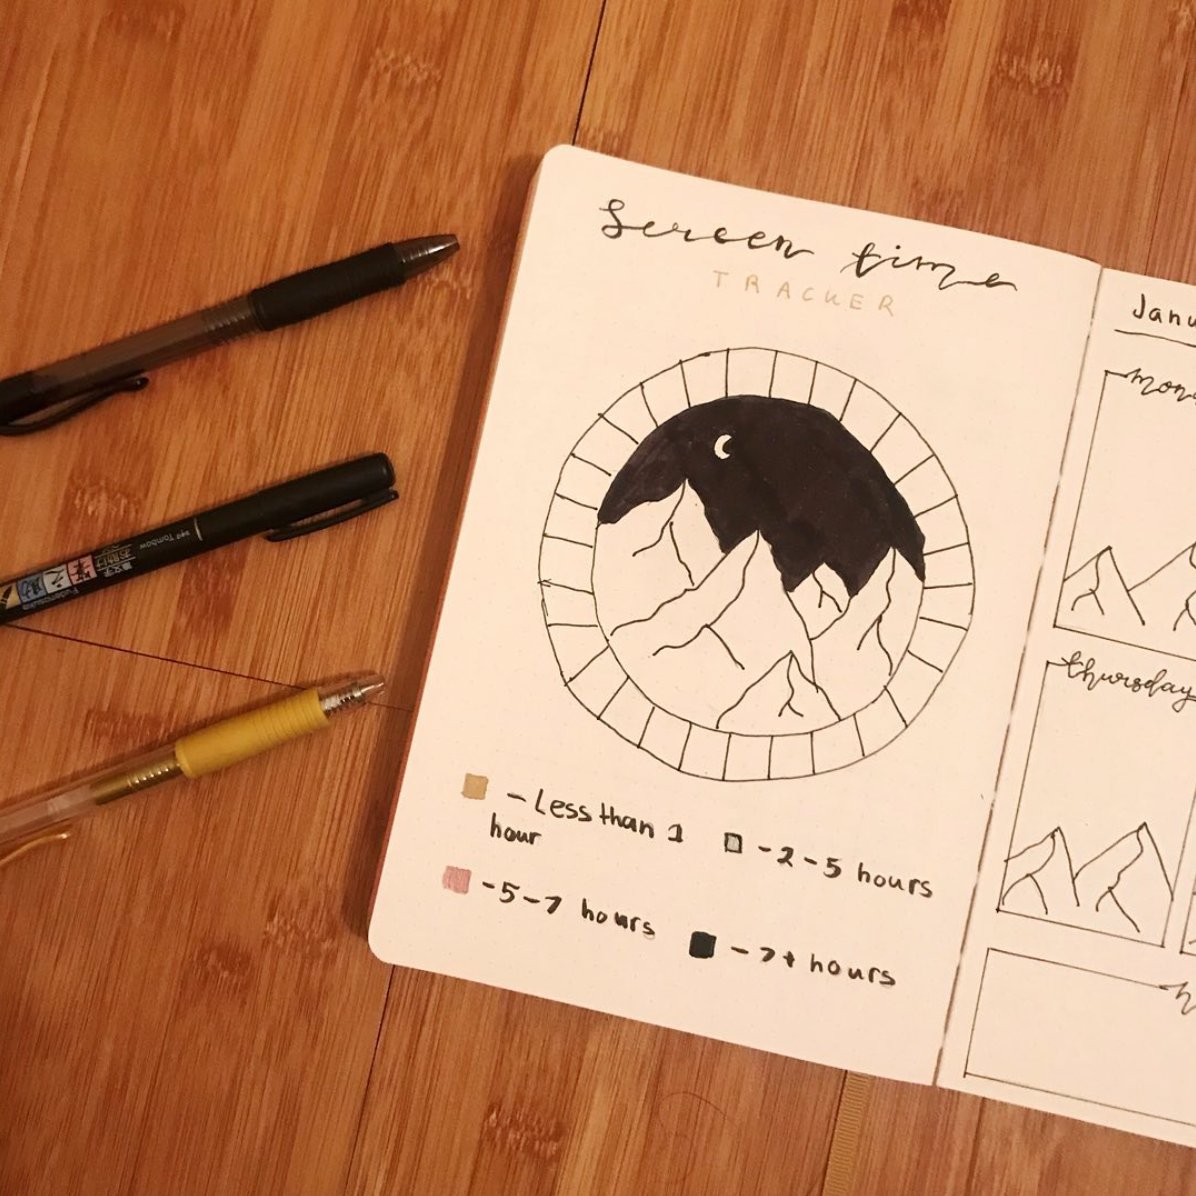 Screen time
TRACKER
- Less than 1
hour
- 2-5 hours
- 5-7 hours
- 7+ hours
Janu
mon
thursday
Tombow
Fudenosuke